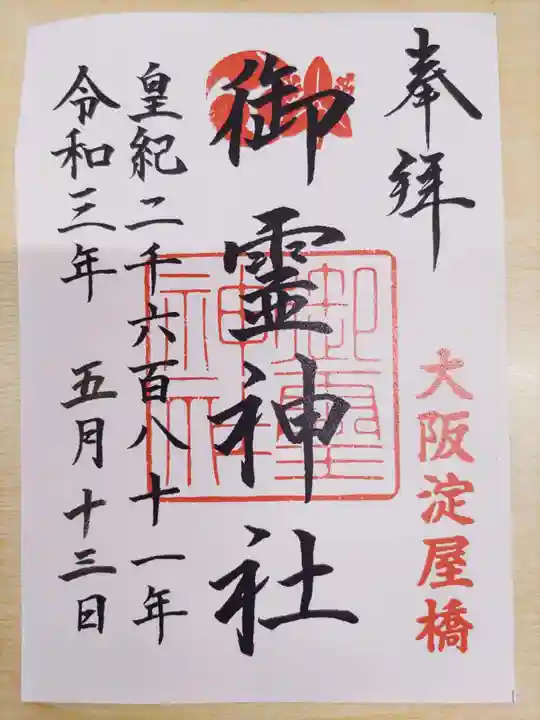 奉拝
大阪淀屋橋
御霊神社
御霊神社
皇紀二千六百八十一年
令和三年 五月十三日